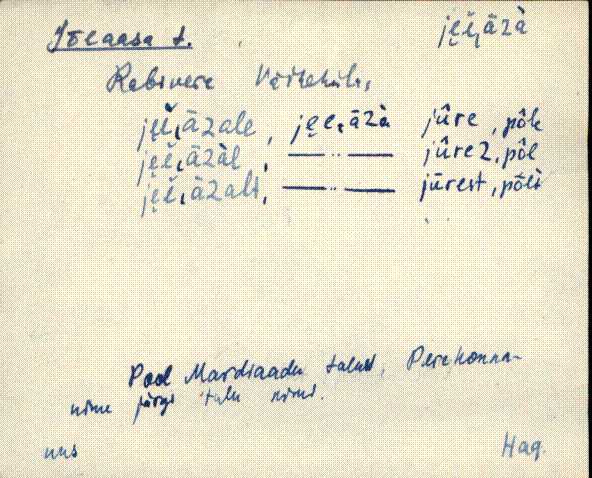 Jõeaasa t.
jẹḙ̆ˌāzà
Rabivere Väikeküla,
jẹḙ̆ˌāzale, jẹḙˌāzà jûre, pôle
jẹḙ̆ˌāzàl, —„— jûrez, pôl
jẹḙ̆ˌāzalt, —„— jūrest, pōlt
Pool Mardiaadu talust, Perekonna-
nime järgi talu nimi.
uus
Hag.